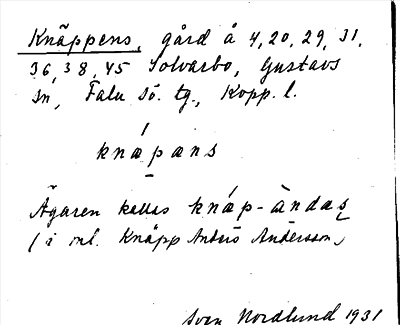 Knäppens, gård å 4, 20, 29, 31,
36, 38, 45 Solvarbo, Gustavs
sn, Falu Sö. tg., Kopp. l.
knápans
Ägaren kallas knáp-àndaș
(i ml. Knäpp Anders Andersson)
Sven Nordlund 1931